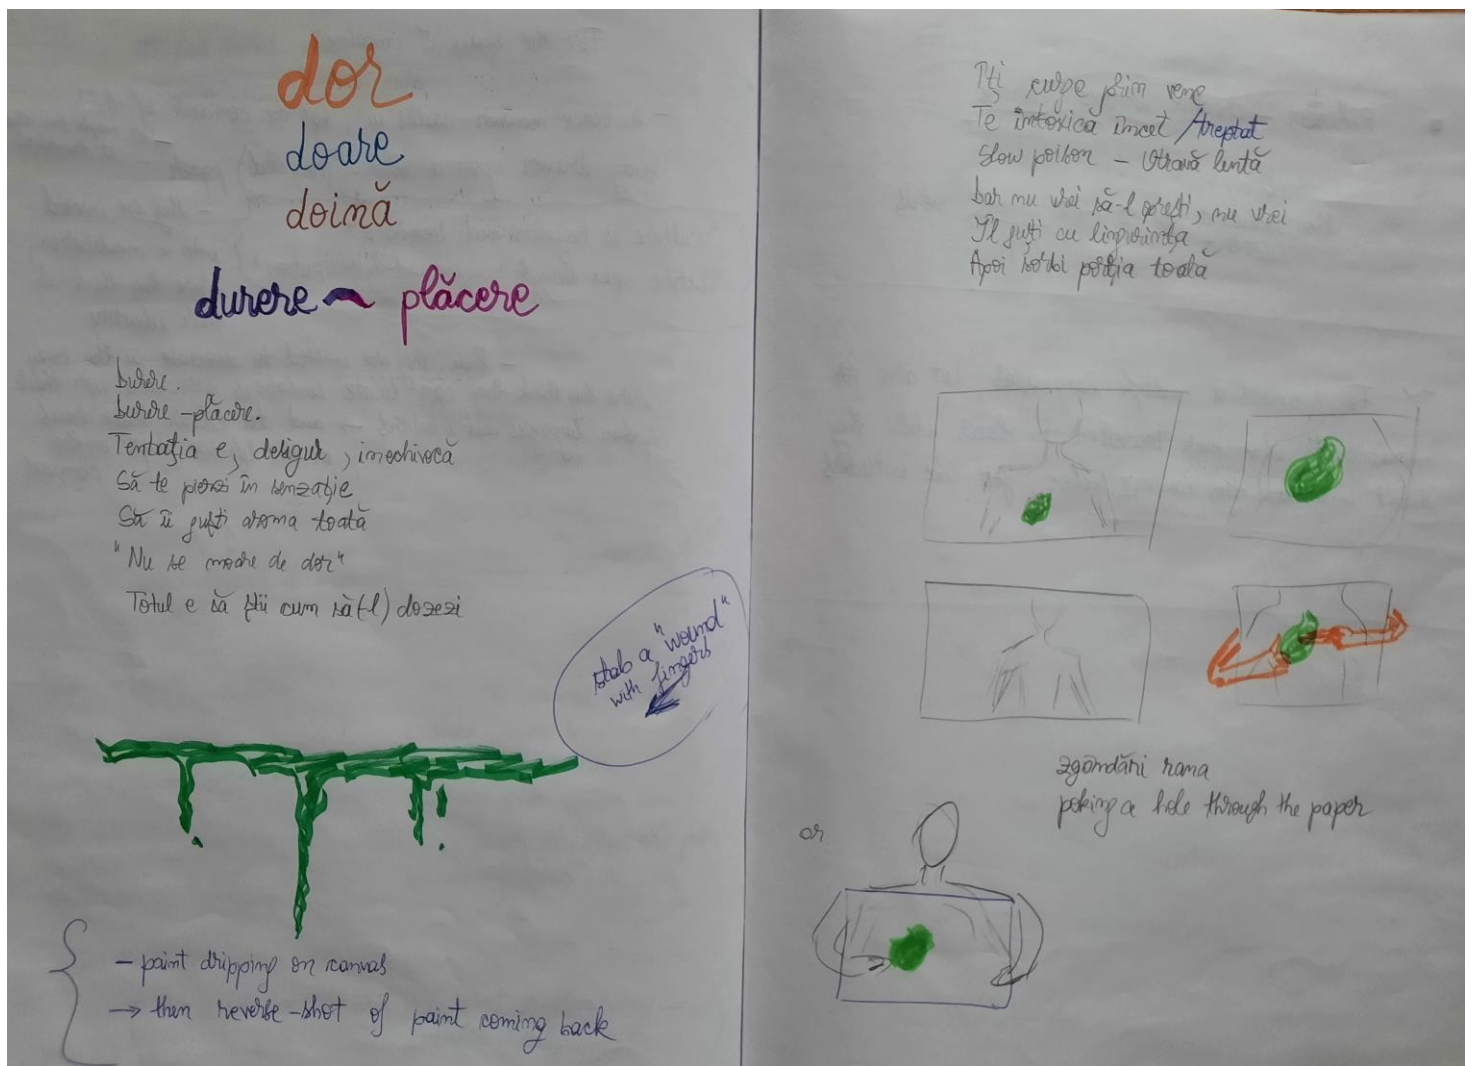 dor
doare
doină
durere ~ plăcere
Durere.
Durere - plăcere.
Tentația e, desigur, inechivocă
Să te pierzi în senzație
Să îi guști aroma toată
"Nu se moare de dor"
Totul e să știi cum să(-l) dozezi
stab a "wound"
with fingers
- paint dripping on canvas
→ then reverse-shot of paint coming back
Îți curge prin vene
Te intoxică încet /treptat
Slow poison - Otravă lentă
Dar nu vrei să-l oprești, nu vrei
Îl guști cu lingurița
Apoi sorbi porția toată
zgândări rana
poking a hole through the paper
or